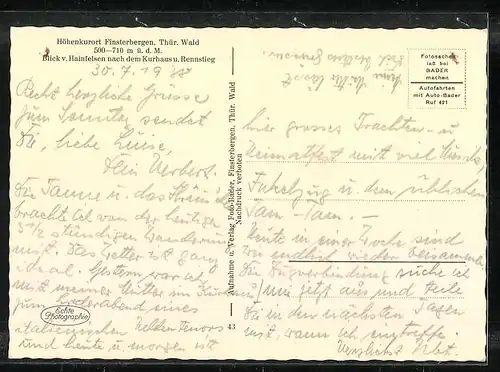 Höhenkurort Finsterbergen, Thür. Wald
500—710 m ü. d. M.
Blick v. Hainfelsen nach dem Kurhaus u. Rennstieg
30.7.19
Recht herzliche Grüsse
zum Sonntag sendet
Dir, liebe Luise,
Dein Herbert.
Die Tanne u. das
brachte ich von der heutigen
3½ stündigen Wanderung
mit. Das Wetter ist ganz
ideal. Gestern war ich
mit meiner Mutter im
zum Liederabend eines
italienischen Tenors
und heute u. morgen ist
Echte
Photographie
Aufnahme u. Verlag Foto-Bader, Finsterbergen, Thür. Wald
Nachdruck verboten
43
Fotosachen
laß bei
BADER
machen
Autofahrten
mit Auto-Bader
Ruf 421
hier grosses Trachten- u.
Heimatfest mit viel Musik,
Fakelzug u. dem üblichen
Tam-Tam. —
Heute in einer Woche sind
wir endlich wieder beisammen.
Die Zugverbindung suche ich
mir jetzt aus und teile
Dir in den nächsten Tagen
mit, wann ich eintreffe.
Herzlichst